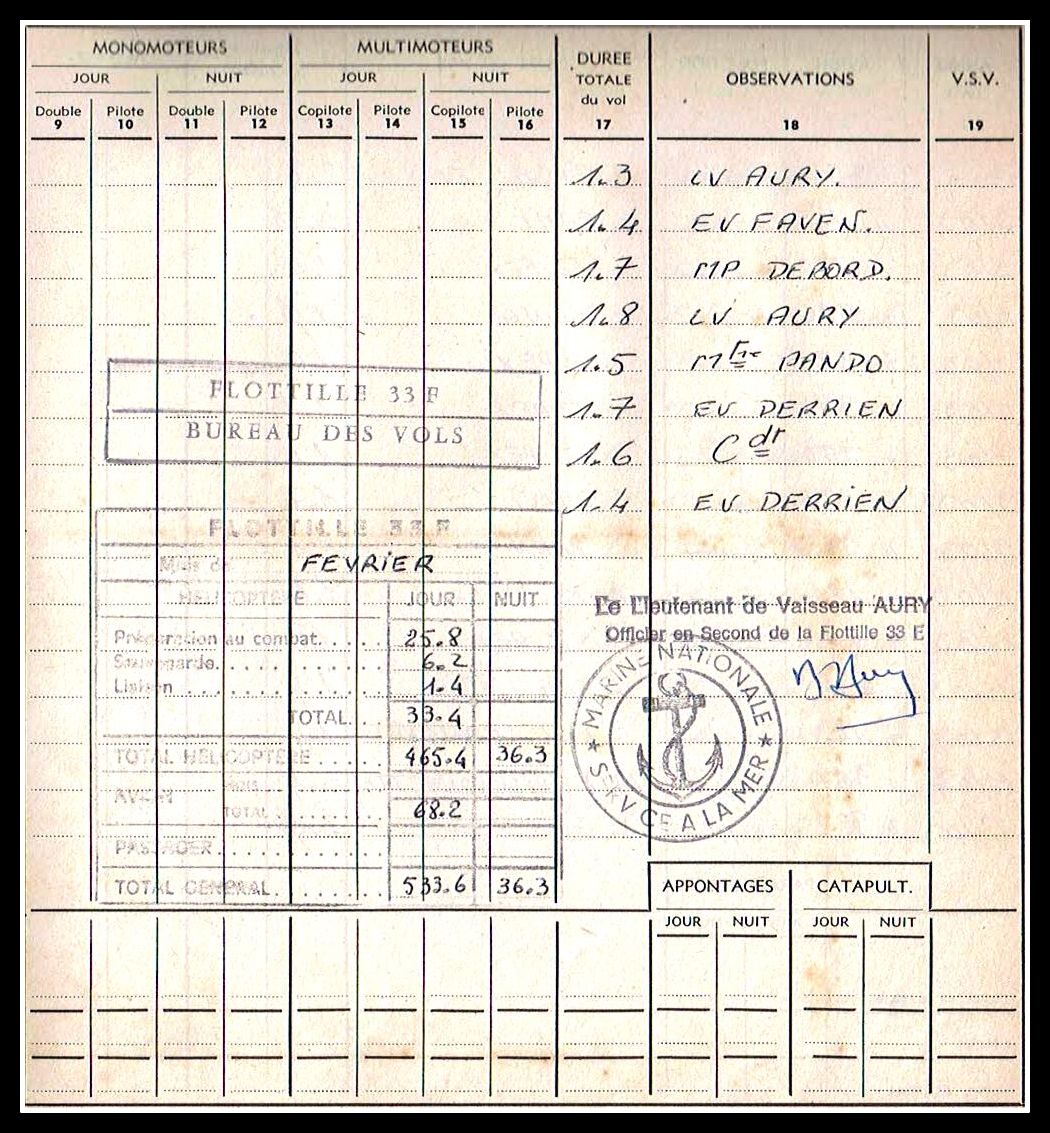 MONOMOTEURS MULTIMOTEURS DUREE TOTALE du vol OBSERVATIONS V.S.V.
JOUR NUIT JOUR NUIT
Double Pilote Double Pilote Copilote Pilote Copilote Pilote
9 10 11 12 13 14 15 16 17 18 19
1.3 LV AURY.
1.4 EV FAVEN.
1.7 MP DEBORD.
1.8 LV AURY
1.5 PANDO
1.7 EV DERRIEN
1.6 Cdt
1.4 EV DERRIEN
FLOTTILLE 33 F
BUREAU DES VOLS
FLOTTILLE 33 F
Mois de FEVRIER
HELICOPTERE JOUR NUIT
Préparation au combat..... 25.8
Sauvegarde. 6.2
Liaison 1.4
TOTAL. 33.4
TOTAL HELICOPTERE 465.4 36.3
AVION MOIS
TOTAL 68.2
PASSAGER
TOTAL GENERAL. 533.6 36.3
Le Lieutenant de Vaisseau AURY
Officier en Second de la Flottille 33 F
MARINE NATIONALE
★ SERVICE A LA MER ★
APPONTAGES CATAPULT.
JOUR NUIT JOUR NUIT